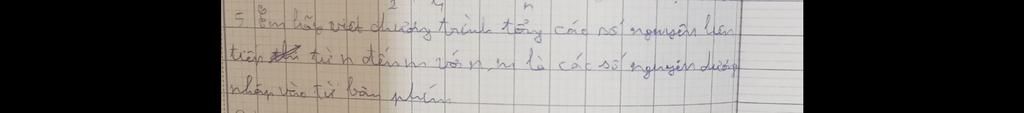 2 4 n
5 Em hãy viết chương trình tổng các số nguyên liên
tiếp từ n đến m với n, m là các số nguyên dương
nhập vào từ bàn phím.